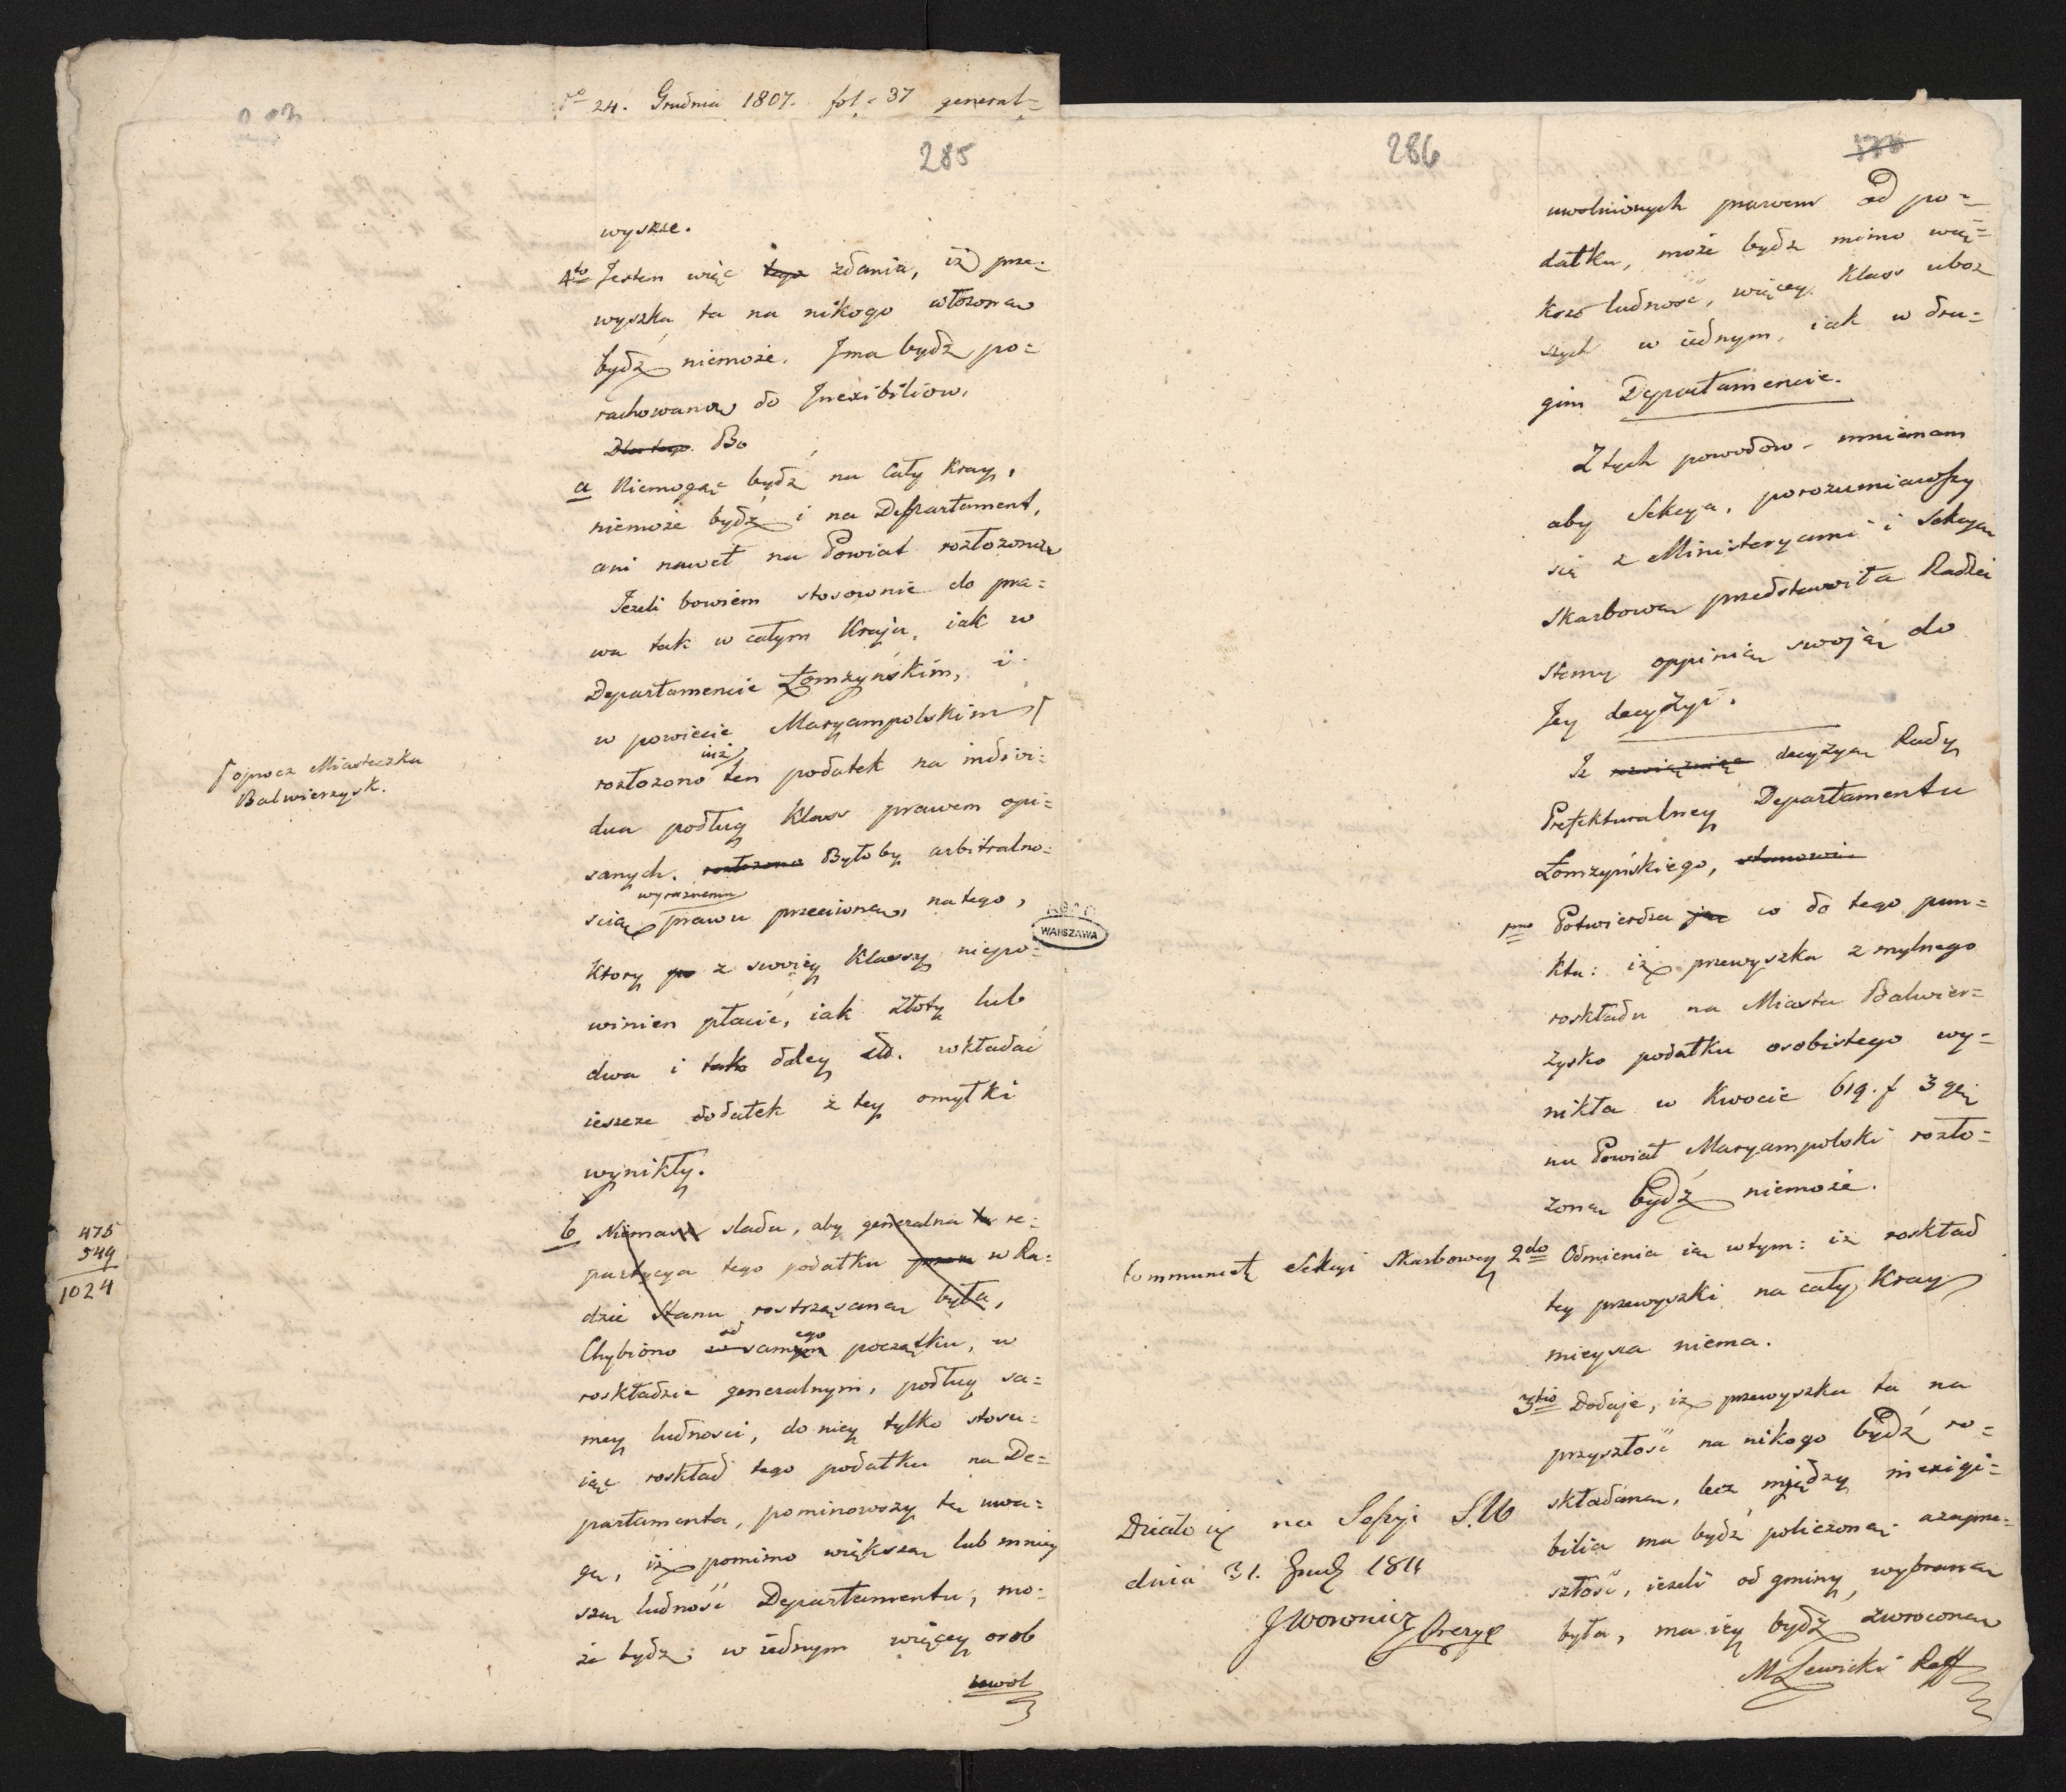 24. Grudnia 1807. fol. 37 general=
285
wyszsze.
4to Jestem więc tego zdania, iż prze=
wyszka ta na nikogo włożona
bydź niemoże. Jma bydź po=
rachowana do Inexibiliow.
Dla tego Bo
a Niemogąc bydź na Cały Kray,
niemoże bydź i na Departament,
ani nawet na Powiat rozłożona
Jeżeli bowiem stosownie do pra=
wa tak w całym Kraju, iak w
Departamencie Łomżyńskim, i
w powiecie Maryampolskim ſ
ſ oprocz Miasteczka
Balwierzysk.
iuż
rozłożono ten podatek na indivi=
dua podług Klass prawem opi=
sanych. rozłożono Byłoby arbitralno=
wyraznemu
scią prawu przeciwną, na tego,
Ktory po z swoiey Klassy niepo=
winien płacić, iak złoty lub
dwa i tak daley etd. wkładać
ieszcze dodatek z tey omyłki
wynikły.
b Niemasz sladu, aby generalna ta re=
partycya tego podatku przez w Ra=
dzie Stanu rostrząsana była,
od ego
Chybiono w samym początku, w
roskładzie generalnym, podług sa=
mey ludnosci, do niey tylko stosu=
iąc roskład tego podatku na De=
partamenta, pominowszy tę uwa=
gę, iż pomimo większą lub mniey
szą ludność Departamentu, mo=
że bydz w iednym więcey osob
uwol
475
549
1024
WARSZAWA
286
uwolnionych prawem od po=
datku, może bydz mimo wię=
kszo ludność, więcey Klass uboz
szych w iednym, iak w dru=
gim Departamencie.
Ztych powodow mniemam
aby Sekcya, porozumiawszy
się z Ministeryami i Sekcyą
Skarbową przedstawiła Radzie
Stanu oppinią swoją do
Jey decyzyi.
Iż rozwiązuiąc decyzyą Rady
Prefekturalney Departamentu
Łomżyńskiego, stanowi
pmo Potwierdza ją co do tego pun=
ktu: iż przewyszka z mylnego
roskładu na Miasta Balwier=
zysko podatku osobistego wy=
nikła w Kwocie 619. f 3 gr.
na Powiat Maryampolski rozło=
żona bydź niemoże.
Kommunik. Sekcyi Skarbowey
2do Odmienia ią wtym: iż roskład
tey przewyszki na cały Kray
mieysca niema.
3tio Dodaje, iż przewyszka ta na
przyszłość na nikogo bydź ro=
składana, lecz między inexigi=
bilia ma bydź policzona; a zaprze=
szłość, ieżeli od gminy wybrana
była, ma iey bydź zwrocona
M Lewicki Reff
Działo się na Sessyi S.W
dnia 31. Grud. 1811
J Woronicz Prezyd